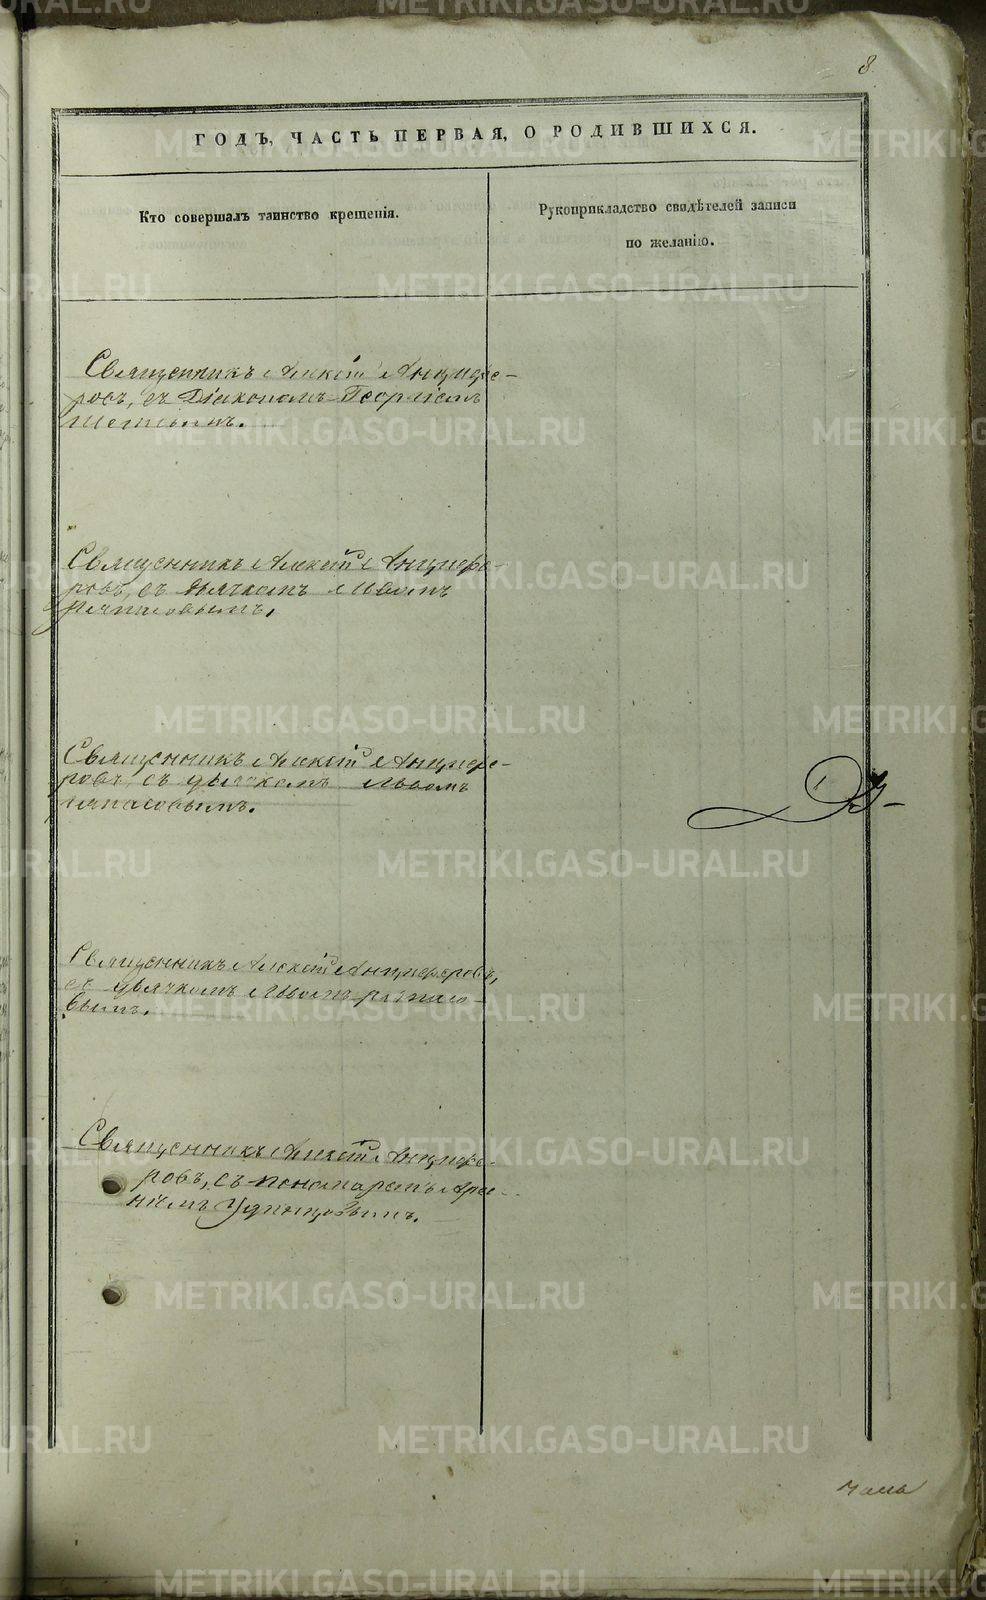 8.
ГОДЪ, ЧАСТЬ ПЕРВАЯ, О РОДИВШИХСЯ.
Кто совершалъ таинство крещенія.
Рукоприкладство свидѣтелей записи
по желанію.
Священникъ Алексій Анцифе-
ровъ, съ Діакономъ Георгіемъ
Священникъ Алексій Анцифе-
ровъ, съ дьячкомъ Львомъ
Ряпасовымъ,
Священникъ Алексій Анцифе-
ровъ, съ дьячкомъ Львомъ
Ряпасовымъ.
Священникъ Алексій Анциферовъ,
съ дьячкомъ Львомъ Ряпасо-
вымъ.
Священникъ Алексій Анцифе-
ровъ, съ пономаремъ Арсе-
ніемъ Удинцовымъ.
METRIKI.GASO-URAL.RU